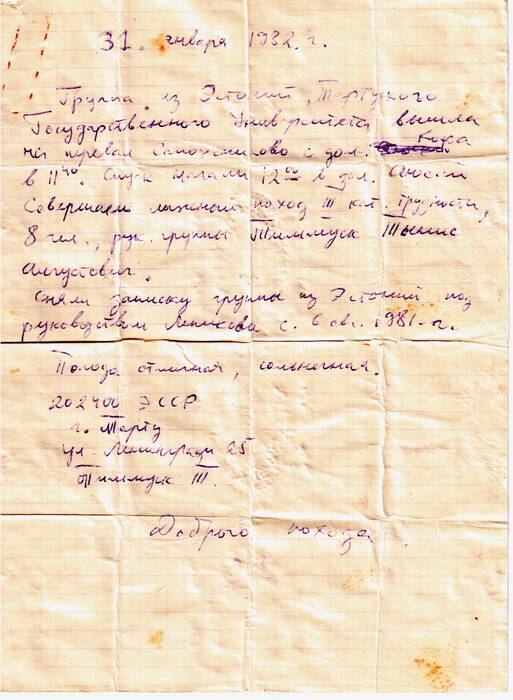 31. января 1982. г.
Группа из Эстоний, Тартуского
Государственного Университета вышла
на перевал Сапожниково с дол. Коха
в 11⁴⁰. Спуск начали 12⁰⁰ в дол.
Совершаем лыжный поход III кат. трудности,
8 чел., рук. группы Тиммуск Тынис
Августович.
Сняли записку группы из Эстоний под
руководством с. 6 авг. 1981. г.
Погода отличная, солнечная.
202400 ЭССР
г. Тарту
ул. Ленингради 25
Тиммуск Т.
Доброго похода.